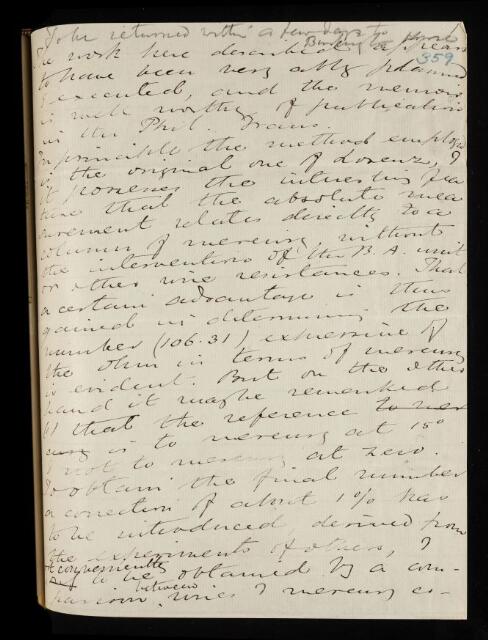 To be returned within a few days to
Burlington House
359
The work here described appears
to have been very ably planned
& executed, and the memoir
is well worthy of publication
in the Phil. Trans.
In principle the method employed
is the original one of Lorenz, &
it possesses the interesting fea
ture that the absolute mea
surement relates directly to a
column of mercury without
the intervention of the B.A. unit
or other wire resistances. That
a certain advantage is thus
gained in determining the
number (106.31) expressive of
the ohm in terms of mercury
is evident. But on the other
hand it may be remarked
(1) that the reference to mer
cury is to mercury at 15°
& not to mercury at zero.
To obtain the final number
a correction of about 1% has
to be introduced derived from
the experiments of others, &
conveniently
to be obtained by a com-
between
parison wires & mercury co-